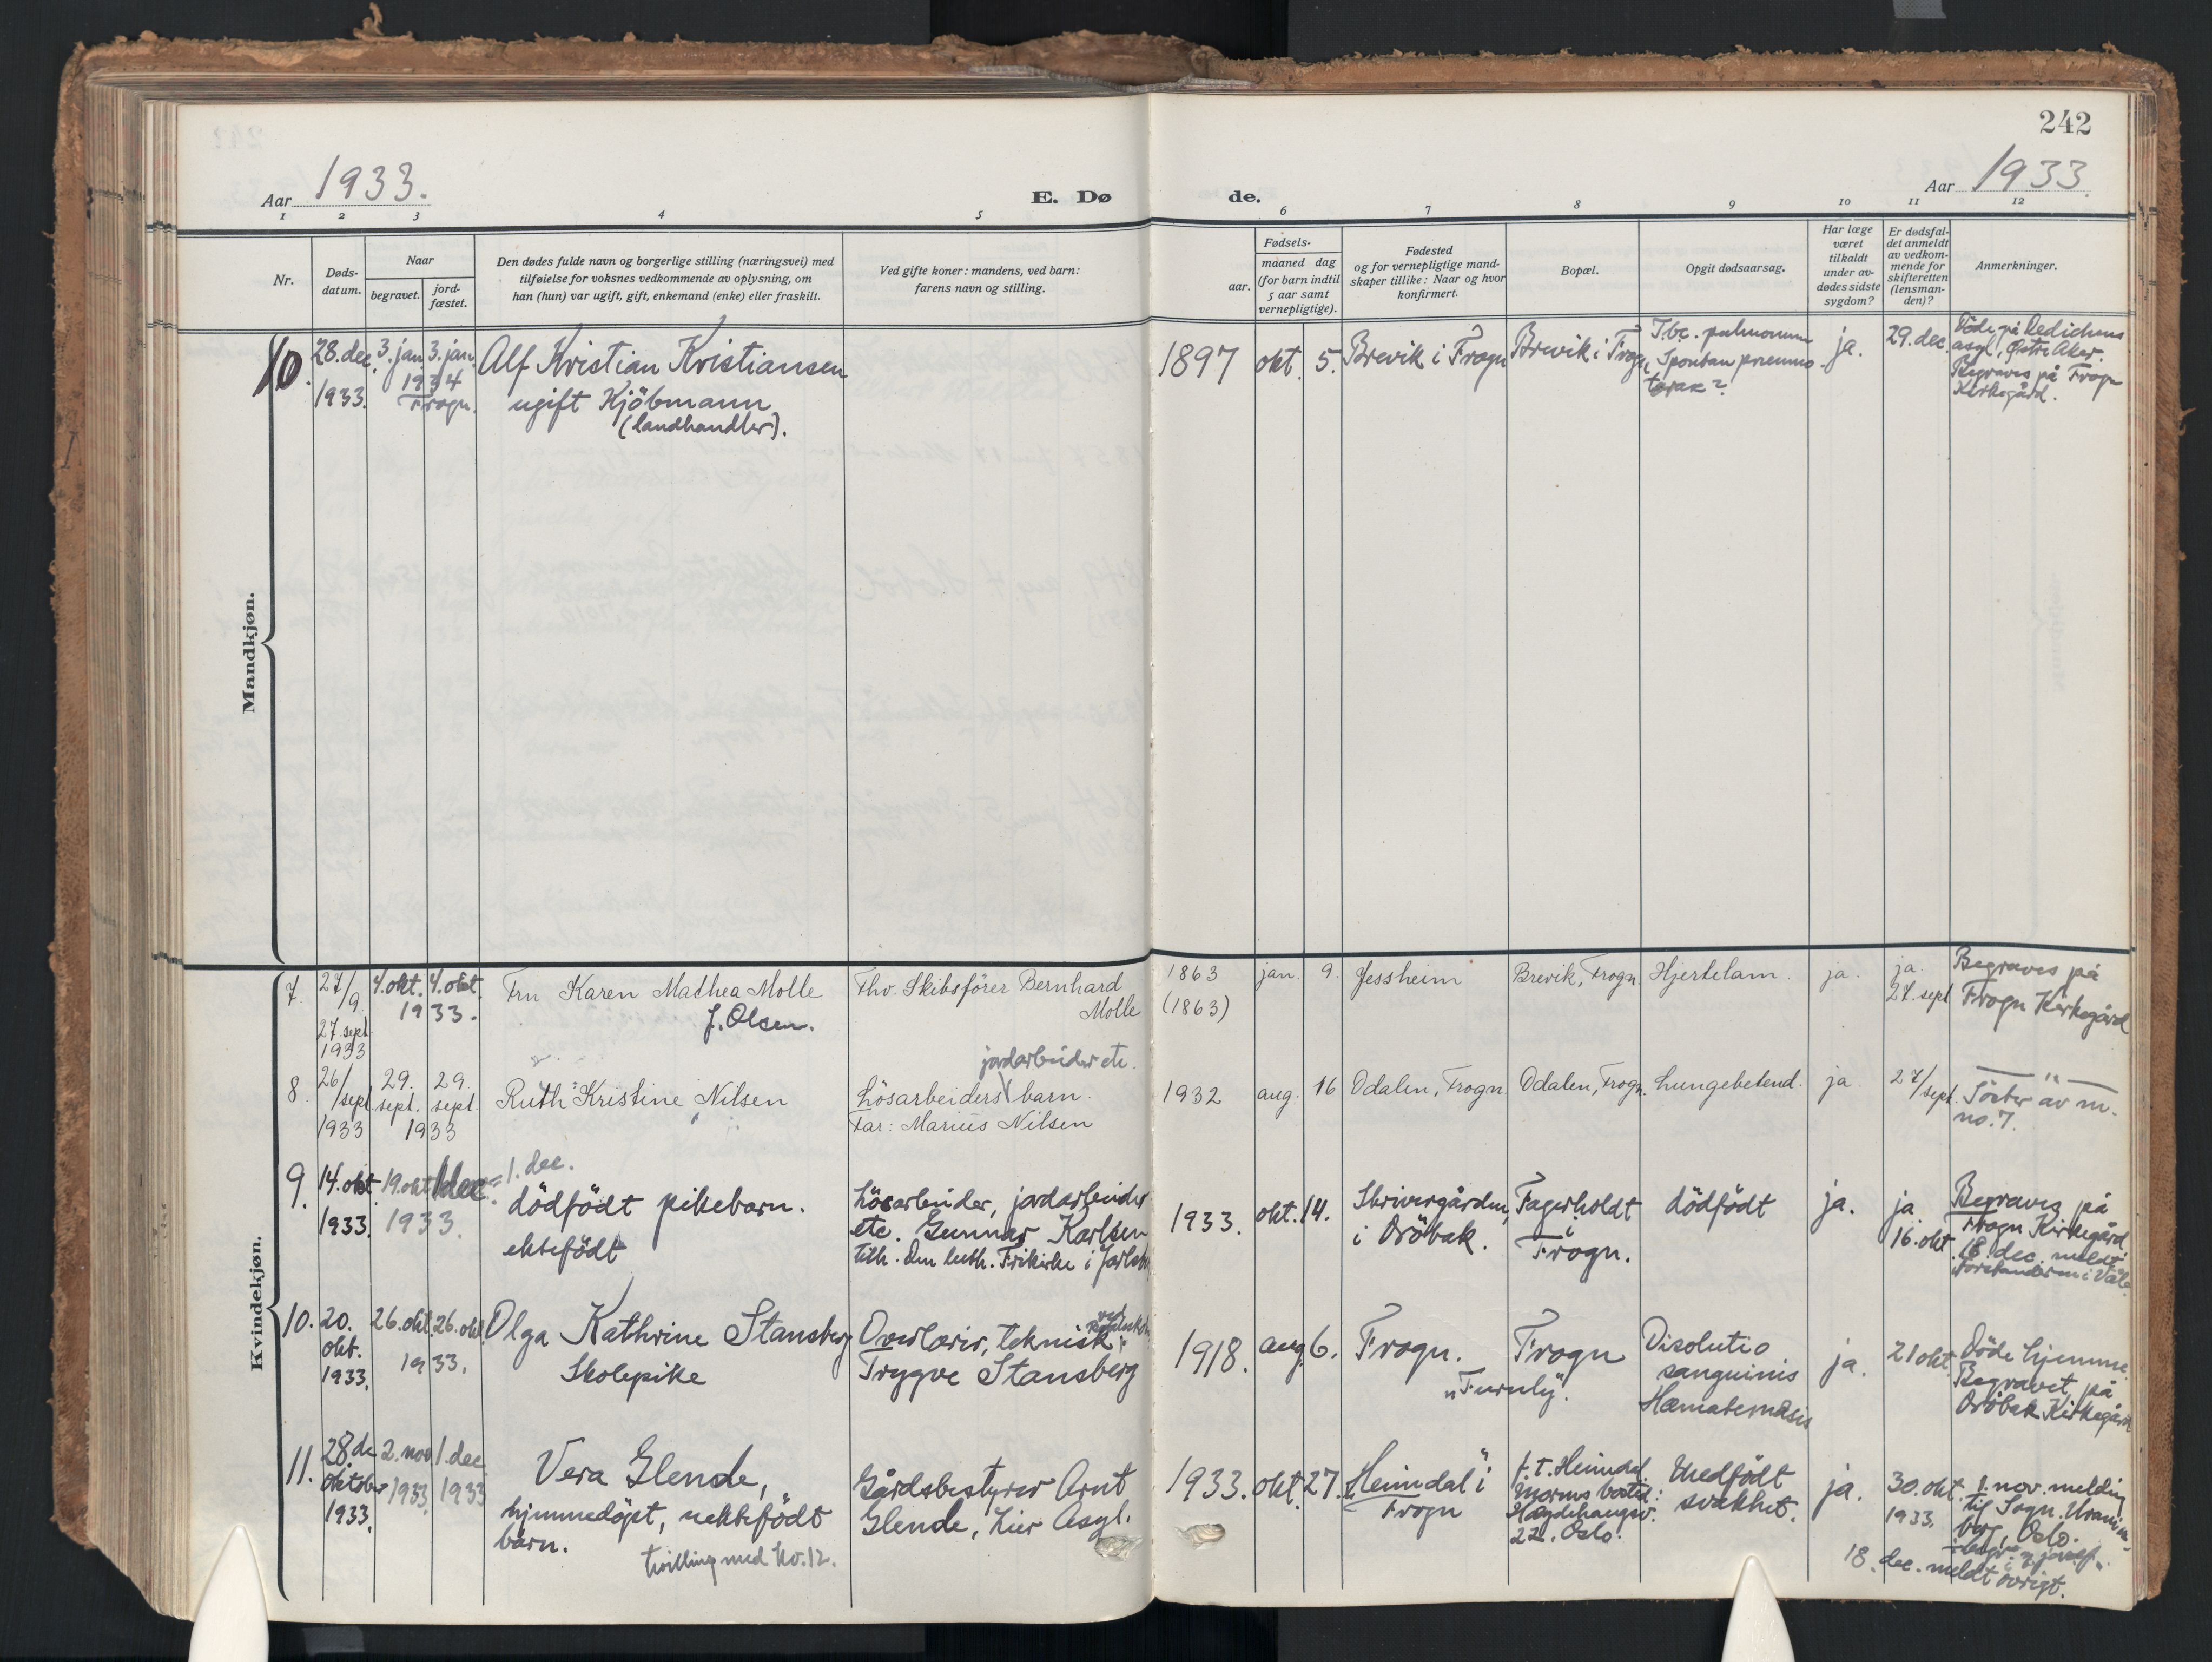 242
Aar 1933.
E. Dø
de.
Aar 1933.
1 2 3 4 5 6 7 8 9 10 11 12
Nr.
Døds-
datum.
Naar
begravet.
jord-
fæstet.
Den dødes fulde navn og borgerlige stilling (næringsvei) med
tilføielse for voksnes vedkommende av oplysning, om
han (hun) var ugift, gift, enkemand (enke) eller fraskilt.
Ved gifte koner: mandens, ved barn:
farens navn og stilling.
Fødsels-
aar.
maaned dag
(for barn indtil
5 aar samt
vernepligtige).
Fødested
og for vernepligtige mand-
skaper tillike: Naar og hvor
konfirmert.
Bopæl.
Opgit dødsaarsag.
Har læge
været
tilkaldt
under av-
dødes sidste
sygdom?
Er dødsfal-
det anmeldt
av vedkom-
mende for
skifteretten
(lensman-
den)?
Anmerkninger.
Mandkjøn.
10.
28. dec.
1933.
3. jan. 3. jan.
1934
Frogn.
Alf Kristian Kristiansen
ugift Kjöbmann
(landhandler).
1897
okt.
5.
Brevik i Frogn
Brevik i Frogn
Tbc. pulmonum
Spontan pneumo-
torax?
ja.
29. dec.
Döde på Dedichens
asyl, Østre Aker.
Begraves på Frogn
Kirkegård.
Kvindekjøn.
7.
27/9
27. sept
1933
4. okt. 4. okt.
1933.
Fru Karen Mathea Molle
f. Olsen.
Fhv. Skibsfører Bernhard
Molle
1863
(1863)
jan.
9.
Jessheim
Brevik, Frogn.
Hjertelam.
ja.
ja.
27. sept
Begraves på
Frogn Kirkegård
8.
26/sept
1933
29. 29.
sept. sept.
1933
Ruth Kristine Nilsen
jordarbeider etc.
Løsarbeiders barn.
Far: Marius Nilsen
1932
aug.
16
Odalen, Frogn.
Odalen, Frogn.
Lungebetend.
ja
27/sept.
— " —
no. 7.
9.
14. okt
1933.
19. okt
1933.
1. dec.
dödfödt pikebarn.
ektefödt
Lösarbeider, jordarbeider
etc. Gunnar Karlsen
tilh. Den luth. Frikirke i Jarlsb
1933.
okt.
14.
Skrivergården,
i Dröbak.
Fagerholdt
i
Frogn.
dödfödt
ja.
ja
16. okt.
Begraves på
Frogn Kirkegård
18. dec. meldt
forstanderen i Våle
10.
20.
okt.
1933.
26. okt. 26. okt
1933.
Olga Kathrine Stansberg
Skolepike
ved
Overlærer, teknisk
Trygve Stansberg
1918.
aug.
6.
Frogn.
Frogn
"Furuly".
Disolutio
sanguinis
Hæmatemesis
ja.
21 okt.
Döde hjemme.
Begravet på
Dröbak Kirkegård
11.
28. de
oktober
1933.
2. nov
1933
1. dec.
1933
Vera Glende,
hjemmedöpt, uektefödt
barn.
tvilling med No. 12.
Gårdsbestyrer Arnt
Glende, Lier Asyl.
1933.
okt.
27.
"Heimdal" i
Frogn
f. T. Heimdal.
morens bosted:
22. Oslo.
Medfödt
svakhet.
ja.
30. okt.
1933.
1. nov. melding
til Sogn. Uranien-
borg, Oslo.
18. dec. meldt övrigt.